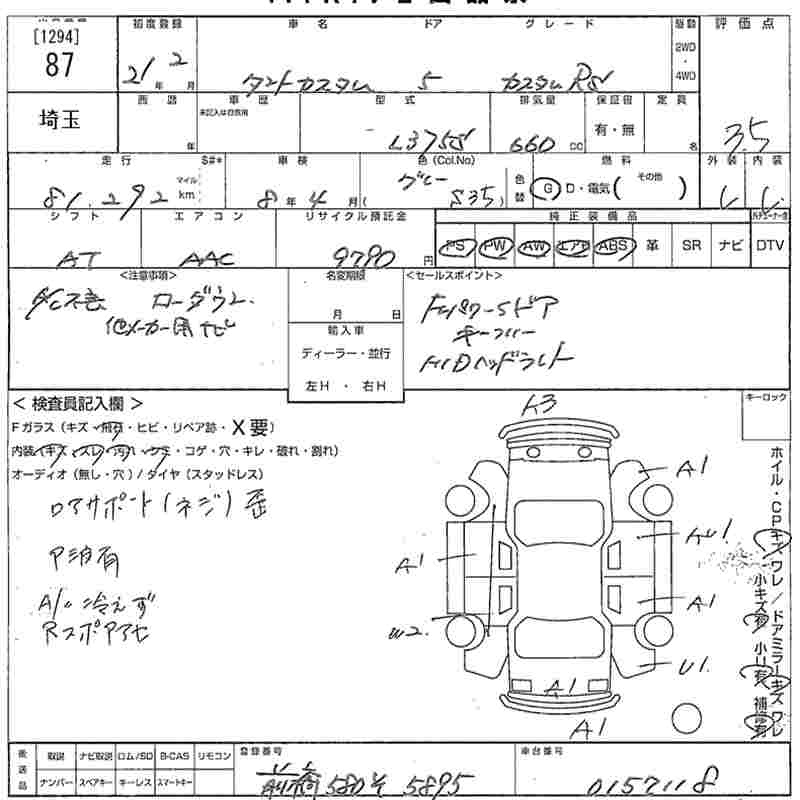 [1294]
87
埼玉
初度登録 車名 ドア グレード 駆動 評価点
21年 2月 タントカスタム 5 カスタムRS 2WD・4WD 3.5
西暦 車歴 型式 排気量 保証書 定員
年 未記入は自家用 L375S 660 cc 有・無 名
走行 S#* 車検 色(Col.No) 燃料 外装 内装
81,292 マイル km 8年 4月 グレー S35 色替 G D・電気( その他 )
シフト エアコン リサイクル預託金 純正装備品
AT AAC 9790円 PS PW AW エアB ABS 革 SR ナビ DTV
<注意事項> 名変期限 <セールスポイント>
A/C不良 ローダウン 月 日
他メーカー用ナビ
輸入車
ディーラー・並行
左H・右H
片パワースドア
キーフリー
HIDヘッドライト
<検査員記入欄> キーロック
Fガラス(キズ・飛石・ヒビ・リペア跡・X要)
内装(キズ・スレ・汚れ・シミ・コゲ・穴・キレ・破れ・割れ)
オーディオ(無し・穴)/タイヤ(スタッドレス)
ロアサポート(ネジ)歪
P波有
A/C冷えず
Rスポアアセ
A3
A1
A1
A1
W2
U1
A1
A1
ホイル・CPキズワレ/ドアミラーキズワレ
小キズ有 小U有 補修有
後送品 取説 ナビ取説 ロム/SD B-CAS リモコン
ナンバー スペアキー キーレス スマートキー
登録番号 車台番号
前橋 580 そ 5895 0157118